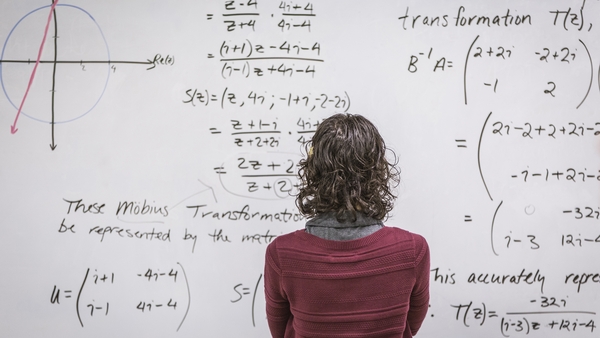 Re(z)
2 4
z-4 / z+4 · 4i+4 / 4i-4
= (i+1)z-4i-4 / (i-1)z+4i-4
S(z)=(z, 4i; -1+i, -2-2i)
= z+1-i / z+2+2i
= 2z+2 / z+2
These Möbius Transformatio
be represented by the matr
U= ( i+1 -4i-4
i-1 4i-4 )
S= (
transformation T(z),
B⁻¹A= ( 2+2i -2+2i
-1 2 )
= ( 2i-2+2+2i-2
-i-1+2i-2
= ( 0 -32i
i-3 12i-4
his accurately repre
T(z)= -32i / (i-3)z+12i-4